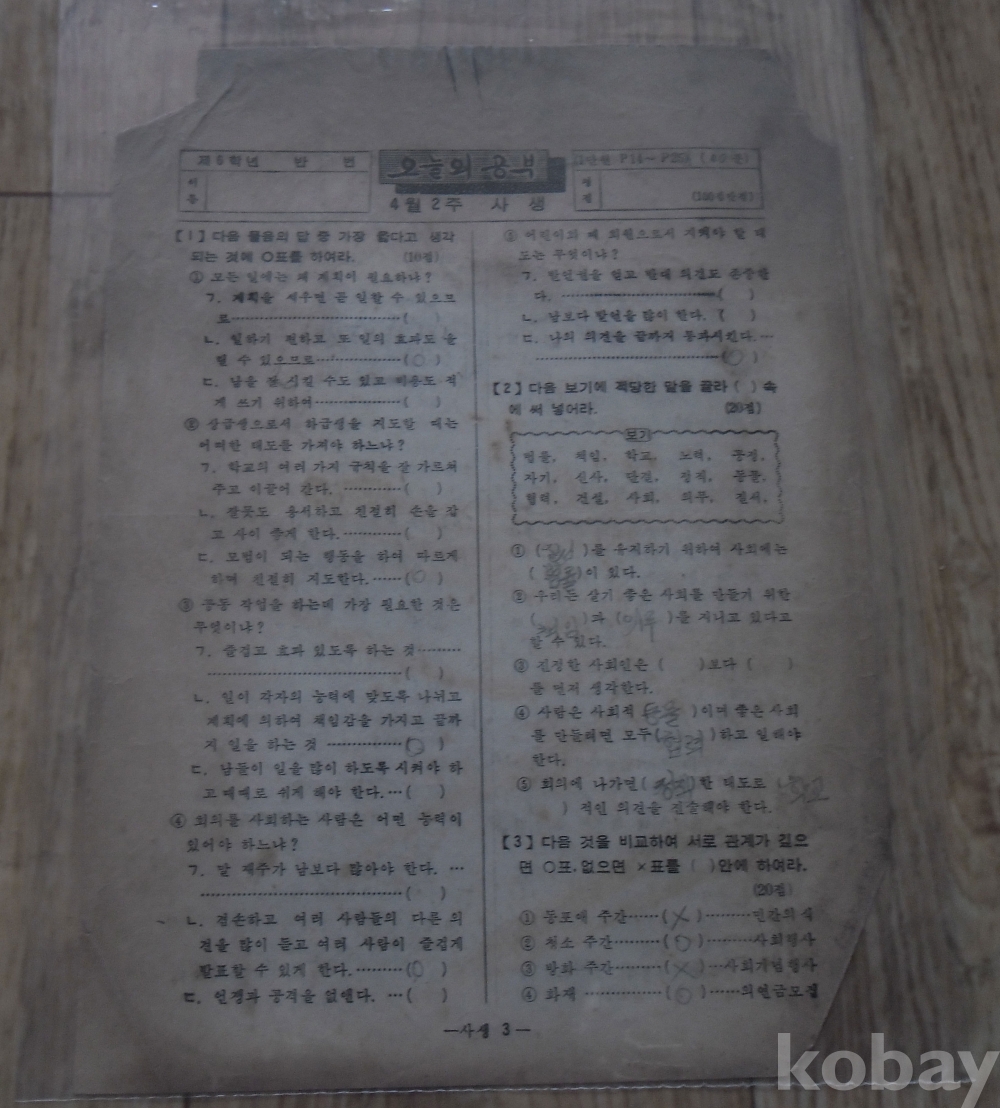 제6학년 반 번
이름
오늘의 공부
4월2주 사생
1단원 P14~P25
(100점만점)
【1】다음 물음의 답 중 가장 옳다고 생각
되는 것에 ○표를 하여라. (10점)
① 모든 일에는 왜 계획이 필요하냐?
ㄱ. 계획을 세우면 곧 일할 수 있으므
로 ( )
ㄴ. 일하기 편하고 또 일의 효과도 올
릴 수 있으므로 (○)
ㄷ. 남을 잘 시킬 수도 있고 비용도 적
게 쓰기 위하여 ( )
② 상급생으로서 하급생을 지도할 때는
어떠한 태도를 가져야 하느냐?
ㄱ. 학교의 여러 가지 규칙을 잘 가르쳐
주고 이끌어 간다. ( )
ㄴ. 잘못도 용서하고 친절히 손을 잡
고 사이 좋게 한다. ( )
ㄷ. 모범이 되는 행동을 하여 따르게
하며 친절히 지도한다. (○)
③ 공동 작업을 하는데 가장 필요한 것은
무엇이냐?
ㄱ. 즐겁고 효과 있도록 하는 것
( )
ㄴ. 일이 각자의 능력에 맞도록 나눠고
계획에 의하여 책임감을 가지고 끝까
지 일을 하는 것 (○)
ㄷ. 남들이 일을 많이 하도록 시켜야 하
고 때때로 쉬게 해야 한다. ( )
④ 회의를 사회하는 사람은 어떤 능력이
있어야 하느냐?
ㄱ. 말 재주가 남보다 많아야 한다.
( )
ㄴ. 겸손하고 여러 사람들의 다른 의
견을 많이 듣고 여러 사람이 즐겁게
발표할 수 있게 한다. (○)
ㄷ. 언쟁과 공격을 없앤다. ( )
⑤ 어린이회 때 회원으로서 지켜야 할 태
도는 무엇이냐?
ㄱ. 발언권을 얻고 반대 의견도 존중한
다. ( )
ㄴ. 남보다 발언을 많이 한다. ( )
ㄷ. 나의 의견을 끝까지 통과시킨다.
(○)
【2】다음 보기에 적당한 말을 골라 ( ) 속
에 써 넣어라. (20점)
보기
법률, 책임, 학교, 노력, 공정,
자기, 신사, 단결, 정직, 동물,
협력, 건설, 사회, 의무, 질서,
① (질서)를 유지하기 위하여 사회에는
(법률)이 있다.
② 우리는 살기 좋은 사회를 만들기 위한
(책임)과 (의무)를 지니고 있다고
할 수 있다.
③ 진정한 사회인은 ( )보다 ( )
를 먼저 생각한다.
④ 사람은 사회적 (동물)이며 좋은 사회
를 만들려면 모두(협력)하고 일해야
한다.
⑤ 회의에 나가면( )한 태도로 (
) 적인 의견을 진술해야 한다.
【3】다음 것을 비교하여 서로 관계가 깊으
면 ○표, 없으면 ×표를 ( )안에 하여라.
(20점)
① 동포애 주간 (×) 민간의 식
② 청소 주간 (○) 사회행사
③ 방화 주간 (×) 사회기념행사
④ 화재 (○) 의연금모집
—사생 3—
kobay